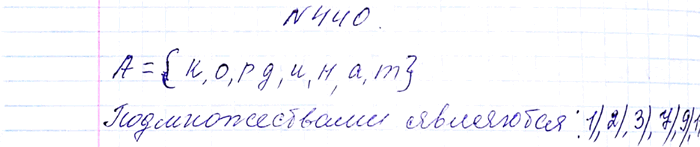 N 440.
A = { к, о, р д, и, н, а, т}
Подмножествами являются: 1), 2), 3), 7), 9),